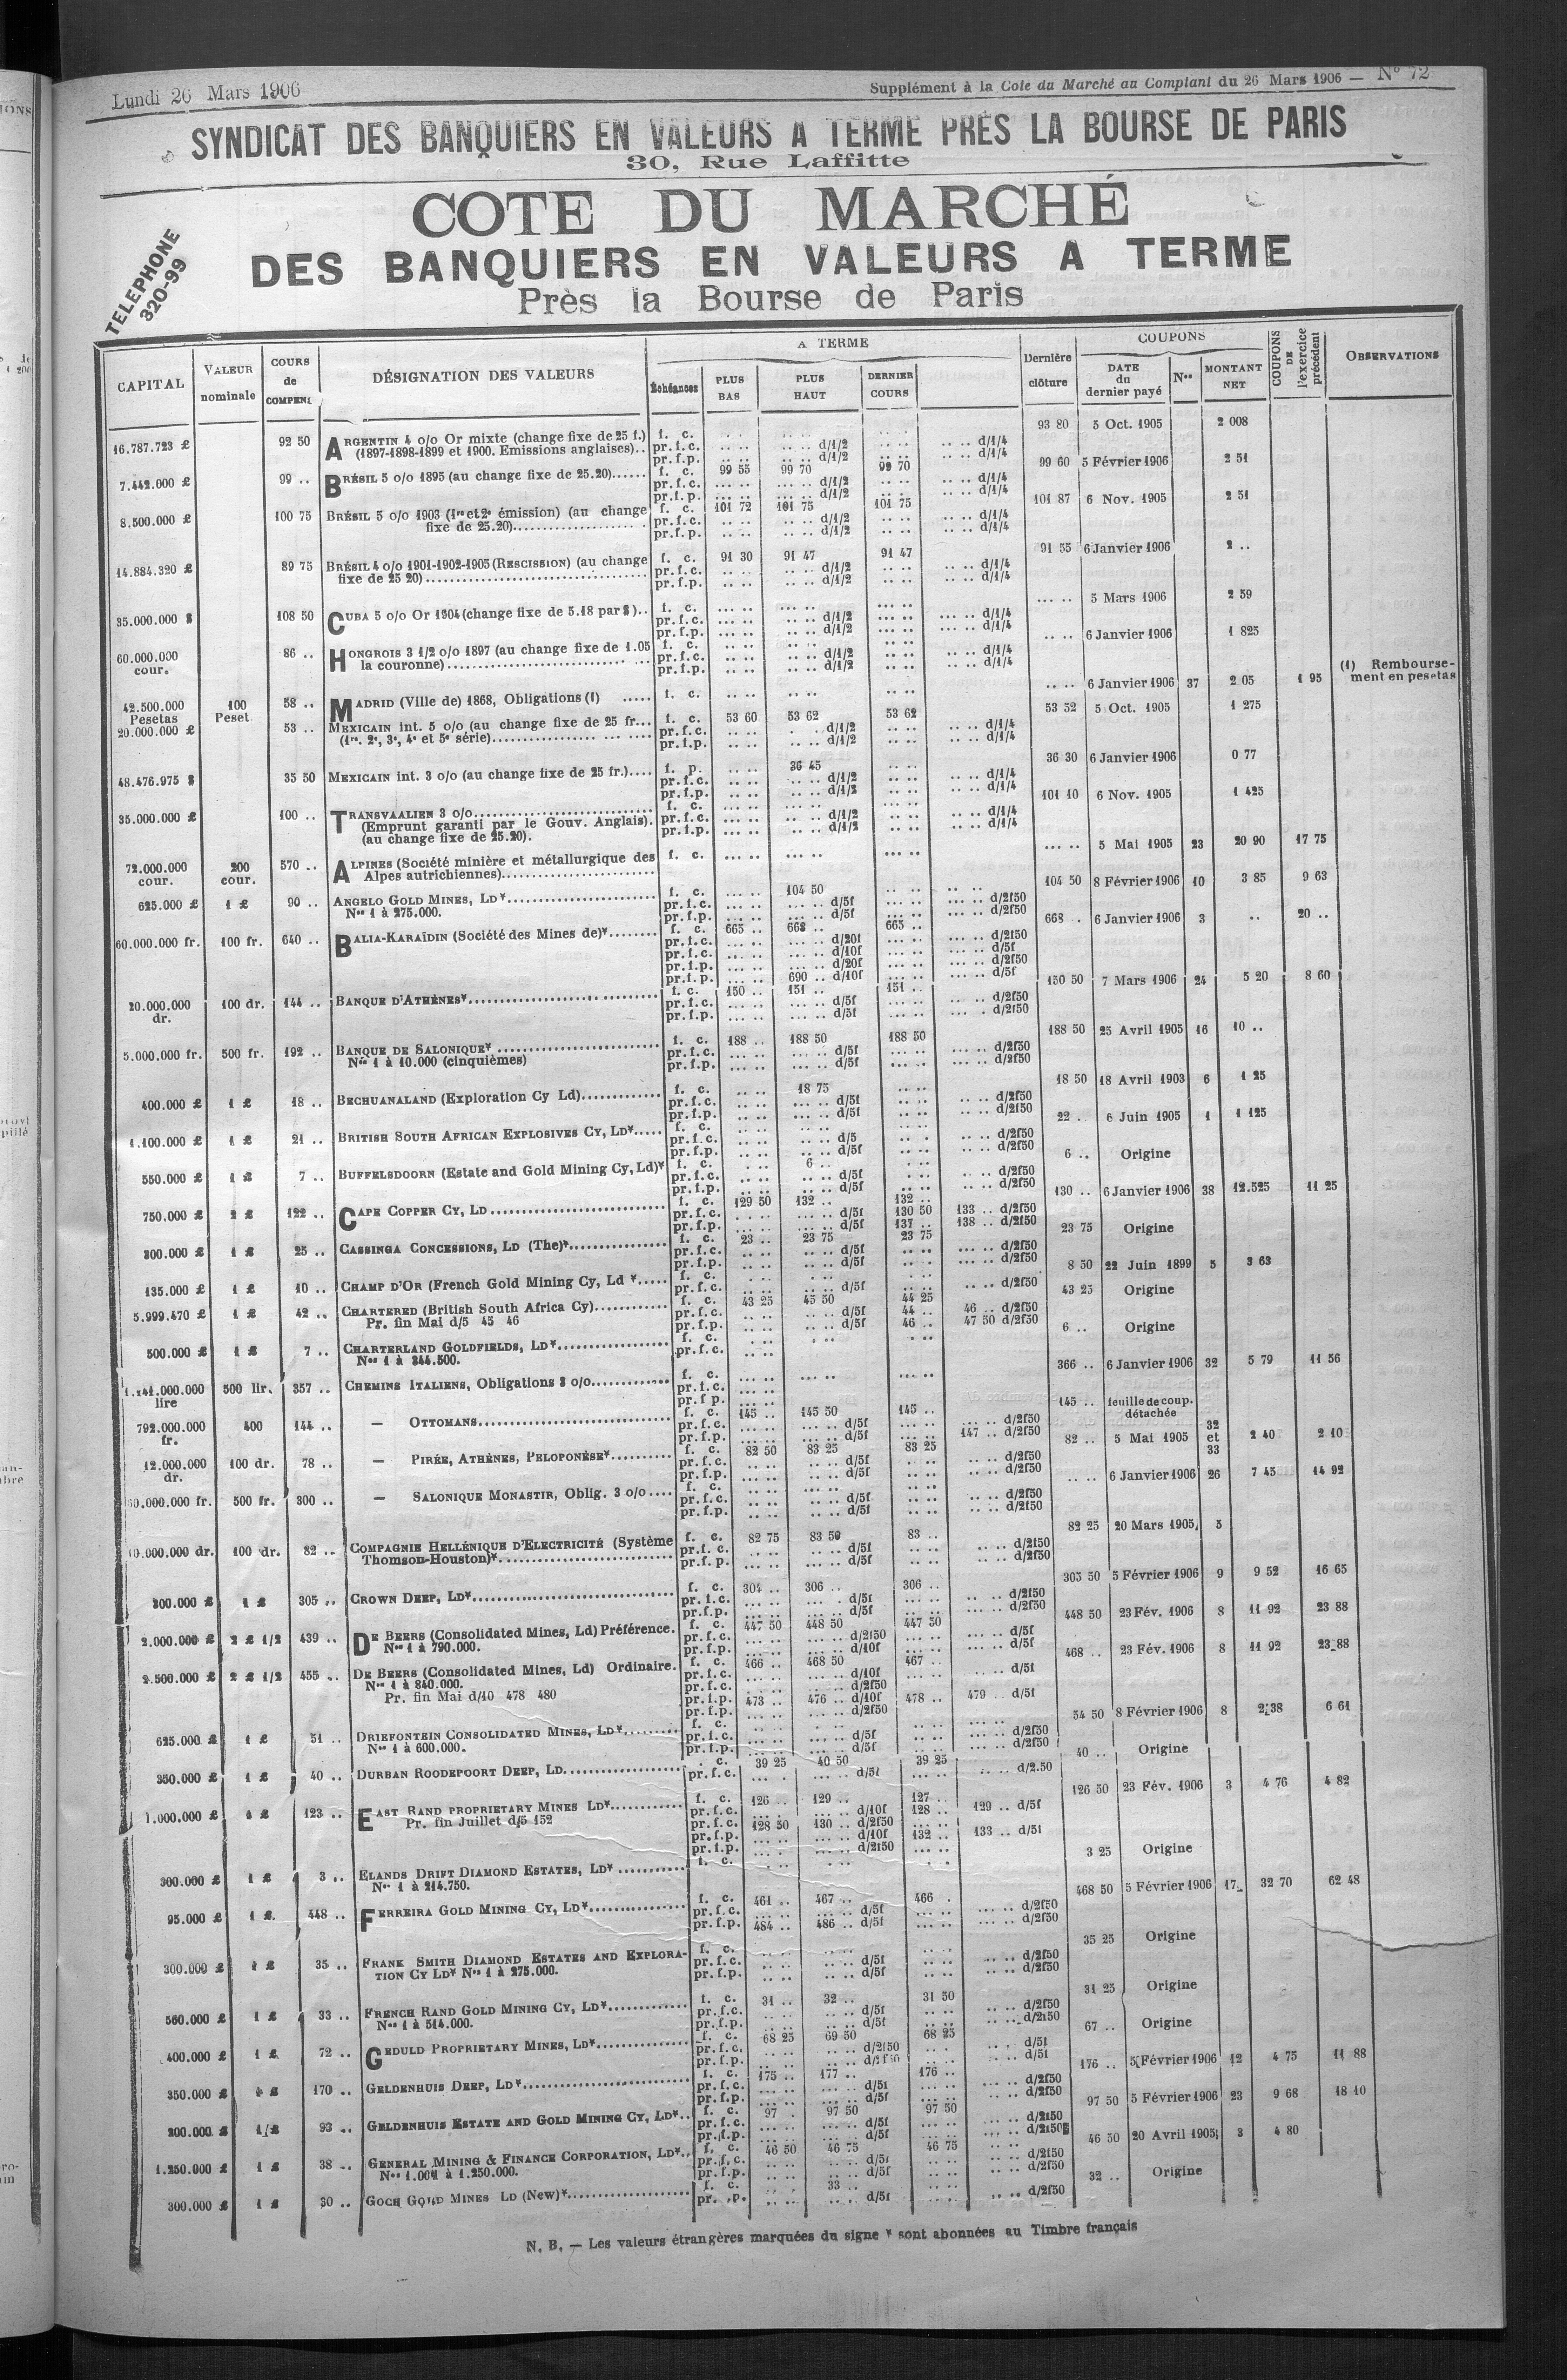 Lundi 26 Mars 1906
Supplément à la Cote du Marché au Comptant du 26 Mars 1906 — N° 72
SYNDICAT DES BANQUIERS EN VALEURS A TERME PRÈS LA BOURSE DE PARIS
30, Rue Laffitte
TELEPHONE
320-99
COTE DU MARCHÉ
DES BANQUIERS EN VALEURS A TERME
Près la Bourse de Paris
CAPITAL | VALEUR nominale | COURS de COMPENS. | DÉSIGNATION DES VALEURS | A TERME | Échéances | PLUS BAS | PLUS HAUT | DERNIER COURS | Dernière clôture | COUPONS | DATE du dernier payé | Nos | MONTANT NET | COUPONS DE l'exercice précédent | OBSERVATIONS
16.787.723 £ 92 50 ARGENTIN 4 o/o Or mixte (change fixe de 25 f.) f. c. 93 80 5 Oct. 1905 2 008
(1897-1898-1899 et 1900. Emissions anglaises).. pr.f.c. d/1/2 d/1/4
pr.f.p. d/1/2 d/1/4
7.442.000 £ 99 .. BRÉSIL 5 o/o 1895 (au change fixe de 25.20)...... f. c. 99 55 99 70 99 70 99 60 5 Février 1906 2 51
pr.f.c. d/1/2 d/1/4
pr.f.p. d/1/2 d/1/4
8.500.000 £ 100 75 BRÉSIL 5 o/o 1903 (1re et 2e émission) (au change f. c. 101 72 101 75 101 75 101 87 6 Nov. 1905 2 51
fixe de 25.20)...... pr.f.c. d/1/2 d/1/4
pr.f.p. d/1/2 d/1/4
14.884.320 £ 89 75 BRÉSIL 4 o/o 1901-1902-1905 (RESCISSION) (au change f. c. 91 30 91 47 91 47 91 55 6 Janvier 1906 2 ..
fixe de 25 20)...... pr.f.c. d/1/2 d/1/4
pr.f.p. d/1/2 d/1/4
35.000.000 $ 108 50 CUBA 5 o/o Or 1904 (change fixe de 5.18 par $).. f. c. .... .. 5 Mars 1906 2 59
pr.f.c. d/1/2 d/1/4
pr.f.p. d/1/2 d/1/4
60.000.000 cour. 86 .. HONGROIS 3 1/2 o/o 1897 (au change fixe de 1.05 f. c. .. .. 6 Janvier 1906 1 825
la couronne)...... pr.f.c. d/1/2 d/1/4
pr.f.p. d/1/2 d/1/4
42.500.000 Pesetas 100 Peset. 58 .. MADRID (Ville de) 1868, Obligations (1) ..... f. c. .. .. 6 Janvier 1906 37 2 05 1 95 (1) Rembourse-
ment en pesetas
20.000.000 £ 53 .. MEXICAIN int. 5 o/o (au change fixe de 25 fr... f. c. 53 60 53 62 53 62 53 52 5 Oct. 1905 1 275
(1re. 2e, 3e, 4e et 5e série)...... pr.f.c. d/1/2 d/1/4
pr.f.p. d/1/2 d/1/4
48.476.975 $ 35 50 MEXICAIN int. 3 o/o (au change fixe de 25 fr.).... f. p. 36 45 36 30 6 Janvier 1906 0 77
pr.f.c. d/1/2 d/1/4
pr.f.p. d/1/2 d/1/4
35.000.000 £ 100 .. TRANSVAALIEN 3 o/o...... f. c. 101 10 6 Nov. 1905 1 425
(Emprunt garanti par le Gouv. Anglais). pr.f.c. d/1/2 d/1/4
(au change fixe de 25.20). pr.f.p. d/1/2 d/1/4
72.000.000 cour. 200 cour. 570 .. ALPINES (Société minière et métallurgique des f. c. .... .. 5 Mai 1905 23 20 90 17 75
Alpes autrichiennes)......
625.000 £ 1 £ 90 .. ANGELO GOLD MINES, LD*...... f. c. 104 50 104 50 8 Février 1906 10 3 85 9 63
Nos 1 à 275.000. pr.f.c. d/5f d/2f50
pr.f.p. d/5f d/2f50
60.000.000 fr. 100 fr. 640 .. BALIA-KARAÏDIN (Société des Mines de)*...... f. c. 665 .. 668 .. 665 .. 668 . 6 Janvier 1906 3 .. 20 ..
pr.f.c. d/20f d/2f50
pr.f.c. d/10f d/5f
pr.f.p. d/20f d/2f50
pr.f.p. 690 .. d/10f d/5f
20.000.000 dr. 100 dr. 144 .. BANQUE D'ATHÈNES*...... f. c. 150 .. 151 .. 151 .. 150 50 7 Mars 1906 24 5 20 8 60
pr.f.c. d/5f d/2f50
pr.f.p. d/5f d/2f50
5.000.000 fr. 500 fr. 192 .. BANQUE DE SALONIQUE* ...... f. c. 188 .. 188 50 188 50 188 50 25 Avril 1905 16 10 ..
Nos 1 à 10.000 (cinquièmes) pr.f.c. d/5f d/2f50
pr.f.p. d/5f d/2f50
400.000 £ 1 £ 18 .. BECHUANALAND (Exploration Cy Ld)...... f. c. 18 75 18 50 18 Avril 1903 6 1 25
pr.f.c. d/5f d/2f50
pr.f.p. d/5f d/2f50
1.100.000 £ 1 £ 21 .. BRITISH SOUTH AFRICAN EXPLOSIVES CY, LD*..... f. c. 22 .. 6 Juin 1905 1 1 125
pr.f.c. d/5 d/2f50
pr.f.p. d/5f d/2f50
550.000 £ 1 £ 7 .. BUFFELSDOORN (Estate and Gold Mining Cy, Ld)* f. c. 6 .. 6 .. Origine
pr.f.c. d/5f d/2f50
pr.f.p. d/5f d/2f50
750.000 £ 2 £ 122 .. CAPE COPPER CY, LD ...... f. c. 129 50 132 .. 132 .. 130 .. 6 Janvier 1906 38 12.525 11 25
pr.f.c. d/5f 130 50 133 .. d/2f50
pr.f.p. d/5f 137 .. 138 .. d/2f50
300.000 £ 1 £ 25 .. CASSINGA CONCESSIONS, LD (The)*...... f. c. 23 .. 23 75 23 75 23 75 Origine
pr.f.c. d/5f d/2f50
pr.f.p. d/5f d/2f50
135.000 £ 1 £ 10 .. CHAMP D'OR (French Gold Mining Cy, Ld *..... f. c. 8 50 22 Juin 1899 5 3 63
pr.f.c. d/5f d/2f50
5.999.470 £ 1 £ 42 .. CHARTERED (British South Africa Cy)...... f. c. 43 25 45 50 44 25 43 25 Origine
Pr. fin Mai d/5 45 46 pr.f.c. d/5f 44 .. 46 .. d/2f50
pr.f.p. d/5f 46 .. 47 50 d/2f50
500.000 £ 1 £ 7 .. CHARTERLAND GOLDFIELDS, LD*...... f. c. 6 .. Origine
Nos 1 à 344.500. pr.f.c.
1.141.000.000 lire 500 lir. 357 .. CHEMINS ITALIENS, Obligations 3 o/o...... f. c. 366 .. 6 Janvier 1906 32 5 79 11 56
pr.f.c.
pr.f p.
792.000.000 fr. 400 144 .. — OTTOMANS...... f. c. 145 .. 145 50 145 .. 145 .. feuille de coup. détachée
pr.f.c. d/5f d/2f50
pr.f.p. d/5f 147 .. d/2f50
12.000.000 dr. 100 dr. 78 .. — PIRÉE, ATHÈNES, PELOPONÈSE*...... f. c. 82 50 83 25 83 25 82 .. 5 Mai 1905 32 et 33 2 40 2 10
pr.f.c. d/5f d/2f50
pr.f.p. d/5f d/2f50
50.000.000 fr. 500 fr. 300 .. — SALONIQUE MONASTIR, Oblig. 3 o/o.... f. c. .. .. 6 Janvier 1906 26 7 45 14 92
pr.f.c. d/5f d/2f50
pr.f.p. d/5f d/2f50
10.000.000 dr. 100 dr. 82 .. COMPAGNIE HELLÉNIQUE D'ELECTRICITÉ (Système f. c. 82 75 83 50 83 .. 82 25 20 Mars 1905 5
Thomson-Houston)*...... pr.f.c. d/5f d/2f50
pr.f.p. d/5f d/2f50
300.000 £ 1 £ 305 .. CROWN DEEP, LD*...... f. c. 304 .. 306 .. 306 .. 305 50 5 Février 1906 9 9 52 16 65
pr.f.c. d/5f d/2f50
pr.f.p. d/5f d/2f50
2.000.000 £ 2 £ 1/2 439 .. DE BEERS (Consolidated Mines, Ld) Préférence. f. c. 447 50 448 50 447 50 448 50 23 Fév. 1906 8 11 92 23 88
Nos 1 à 790.000. pr.f.c. d/2f50 d/5f
pr.f.p. d/10f d/5f
2.500.000 £ 2 £ 1/2 455 .. DE BEERS (Consolidated Mines, Ld) Ordinaire. f. c. 466 .. 468 50 467 .. 468 .. 23 Fév. 1906 8 11 92 23 88
Nos 1 à 840.000. pr.f.c. d/10f d/5f
Pr. fin Mai d/10 478 480 pr.f.c. d/2f50
pr.f.p. 473 .. 476 .. d/10f 478 .. 479 .. d/5f
pr.f.p. d/2f50
625.000 £ 1 £ 51 .. DRIEFONTEIN CONSOLIDATED MINES, LD*...... f. c. 54 50 8 Février 1906 8 2 38 6 61
Nos 1 à 600.000. pr.f.c. d/5f d/2f50
pr.f.p. d/5f d/2f50
350.000 £ 1 £ 40 .. DURBAN ROODEPOORT DEEP, LD...... c. 39 25 40 50 39 25 40 .. Origine
pr.f.c. d/5f d/2.50
1.000.000 £ 1 £ 123 .. EAST RAND PROPRIETARY MINES LD*...... f. c. 126 .. 129 .. 127 .. 126 50 23 Fév. 1906 3 4 76 4 82
Pr. fin Juillet d/5 152 pr.f.c. d/10f 128 .. 129 .. d/5f
pr.f.c. 128 50 130 .. d/2f50
pr.f.p. d/10f 132 .. 133 .. d/5f
pr.f.p. d/2f50
300.000 £ 1 £ 3 .. ELANDS DRIFT DIAMOND ESTATES, LD* ...... f. c. 3 25 Origine
Nos 1 à 214.750.
95.000 £ 1 £ 448 .. FERREIRA GOLD MINING CY, LD*...... f. c. 461 .. 467 .. 466 . 468 50 5 Février 1906 17 32 70 62 48
pr.f.c. d/5f d/2f50
pr.f.p. 484 .. 486 .. d/5f d/2f50
300.000 £ 1 £ 35 .. FRANK SMITH DIAMOND ESTATES AND EXPLORA- f. c. 35 25 Origine
TION CY LD* Nos 1 à 275.000. pr.f.c. d/5f d/2f50
pr.f.p. d/5f d/2f50
560.000 £ 1 £ 33 .. FRENCH RAND GOLD MINING CY, LD*...... f. c. 31 .. 32 .. 31 50 31 25 Origine
Nos 1 à 514.000. pr.f.c. d/5f d/2f50
pr.f.p. d/5f d/2f50
400.000 £ 1 £ 72 .. GEDULD PROPRIETARY MINES, LD*...... f. c. 68 25 69 50 68 25 67 .. Origine
pr.f.c. d/2f50 d/5f
pr.f.p. d/2f50 d/5f
350.000 £ 1 £ 170 .. GELDENHUIS DEEP, LD*...... f. c. 175 .. 177 .. 176 .. 176 .. 5 Février 1906 12 4 75 11 88
pr.f.c. d/5f d/2f50
pr.f.p. d/5f d/2f50
200.000 £ 1 £ 93 .. GELDENHUIS ESTATE AND GOLD MINING CY, LD*.. f. c. 97 . 97 50 97 50 97 50 5 Février 1906 23 9 68 18 10
pr.f.c. d/5f d/2f50
pr.f.p. d/5f d/2f50
1.250.000 £ 1 £ 38 .. GENERAL MINING & FINANCE CORPORATION, LD*.. f. c. 46 50 46 75 46 75 46 50 20 Avril 1905 3 4 80
Nos 1.001 à 1.250.000. pr.f.c. d/5f d/2f50
pr.f.p. d/5f d/2f50
300.000 £ 1 £ 30 .. GOCH GOLD MINES LD (New)*...... f. c. 33 .. 32 .. Origine
pr. .p. d/5f d/2f50
N. B. — Les valeurs étrangères marquées du signe * sont abonnées au Timbre français